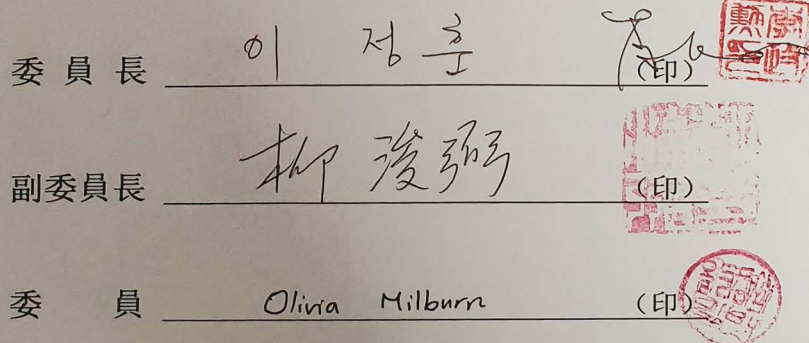 委員長 이 정훈 (印)
副委員長 柳浚弼 (印)
委員 Olivia Milburn (印)